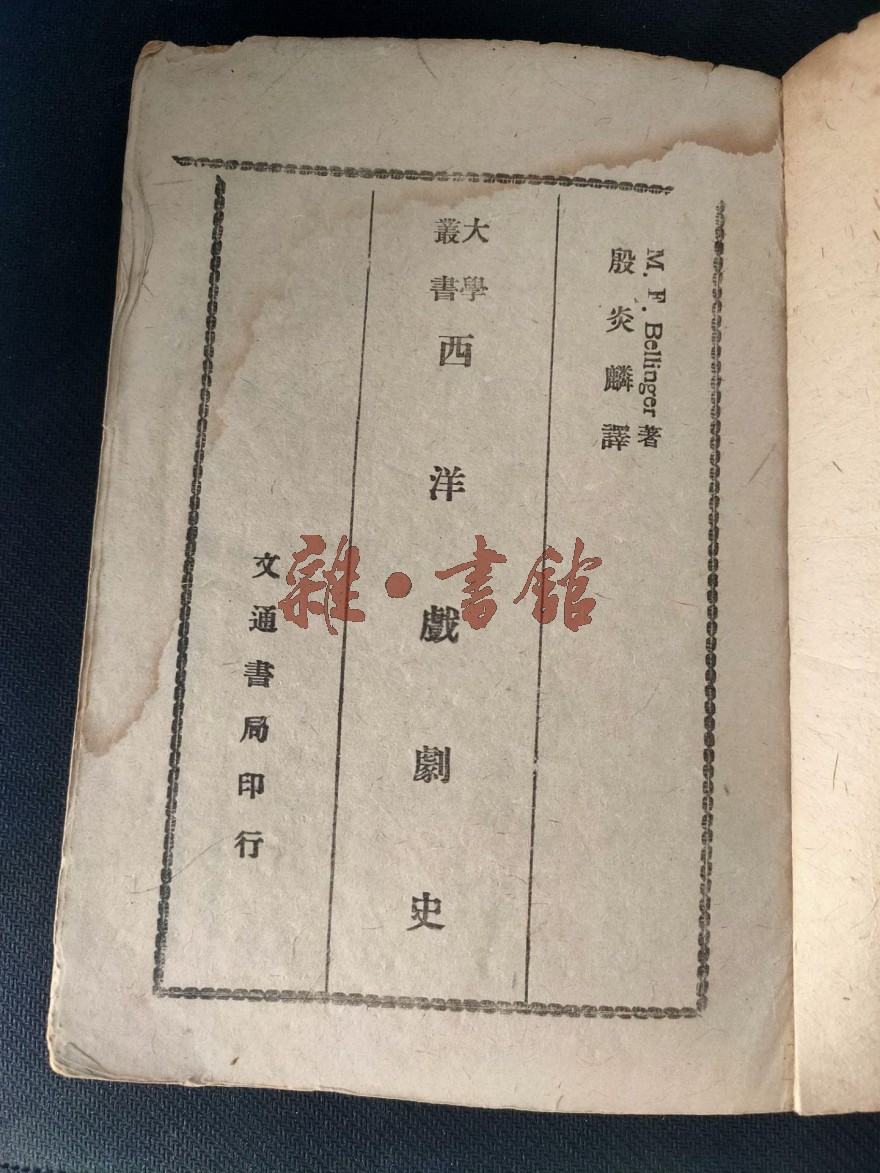 M. F. Bellinger 著
殷炎麟譯
大學
叢書
西洋戲劇史
文通書局印行
雜·書館